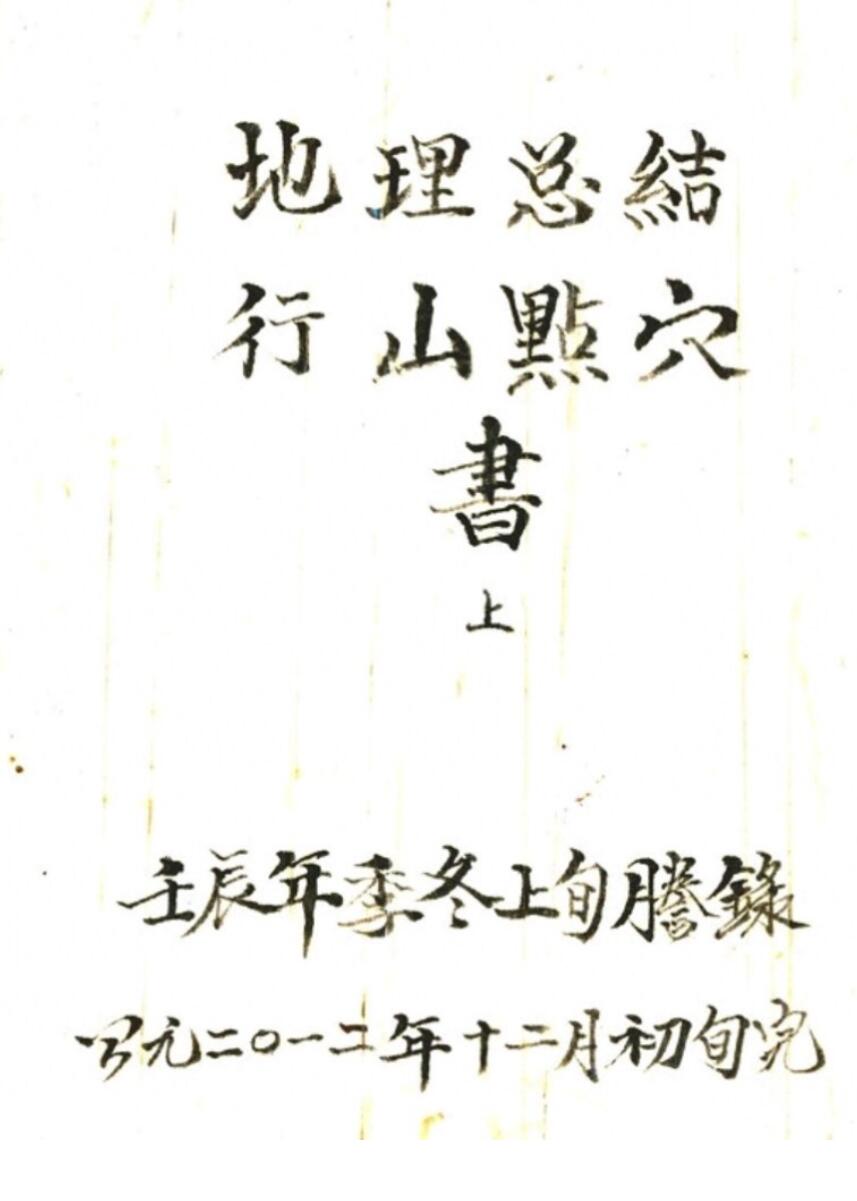 地理总結
行山點穴
書
上
壬辰年季冬上旬謄錄
公元二〇一二年十二月初旬完